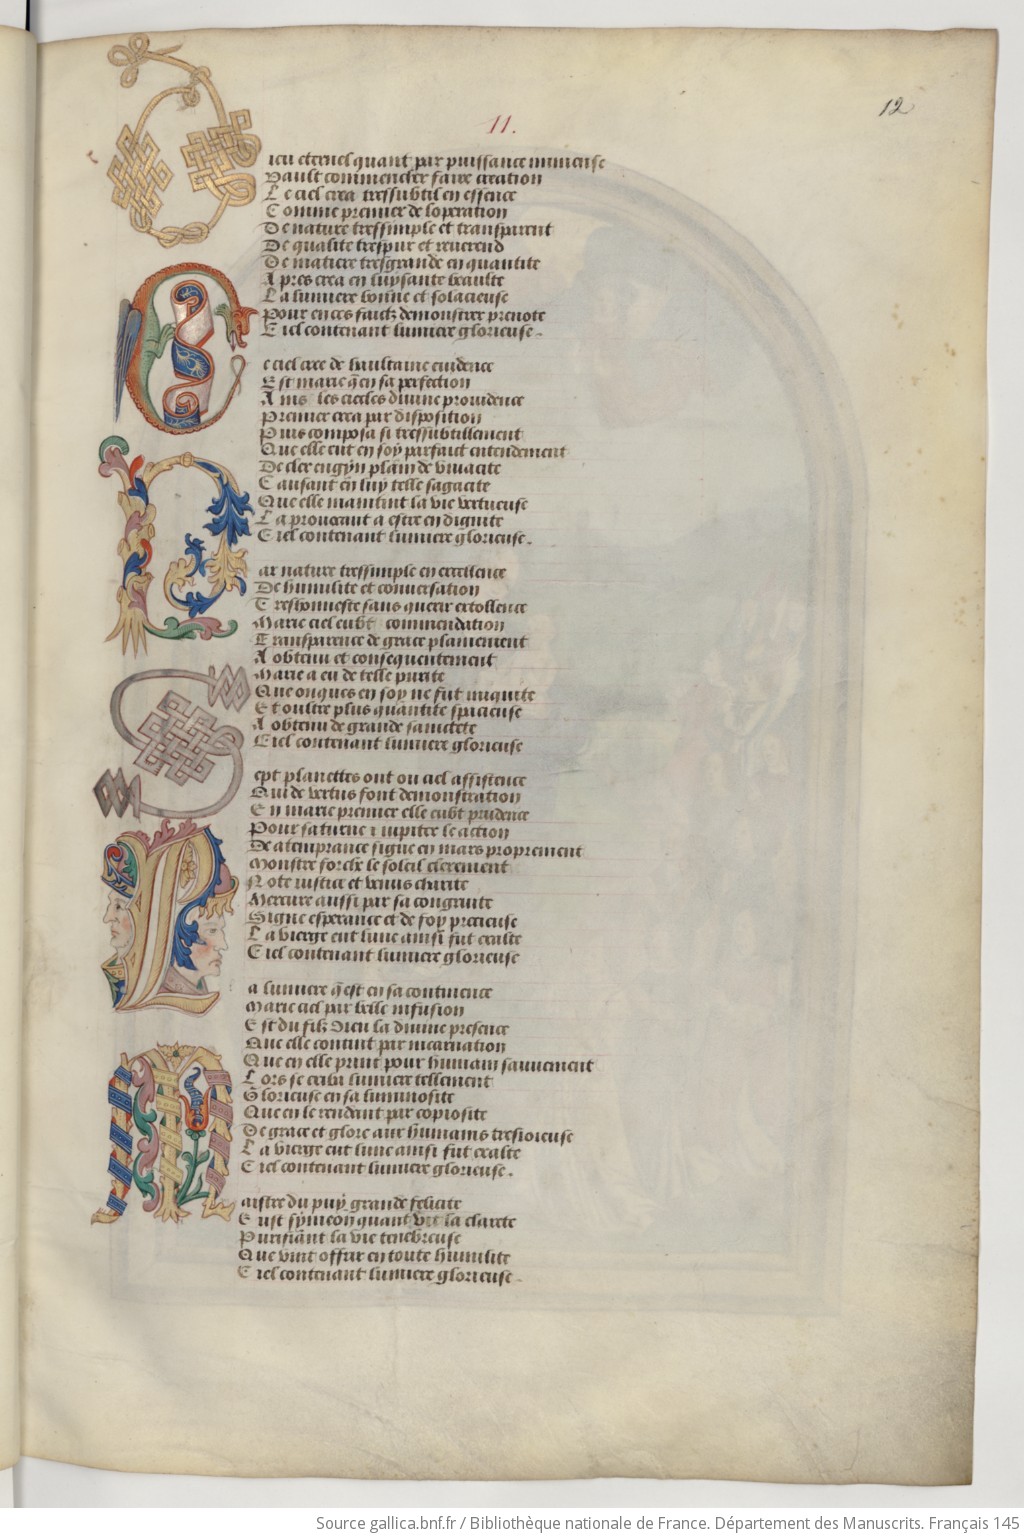 12
11.
Dieu eternel quant par puissance immense
Vault commencher faire creation
Le ciel crea tressubtil en essence
Comme premier de loperation
De nature tressimple et transparent
De qualite trespur et reuerend
De matiere tresgrande en quantite
Apres crea en luysante beaulte
La lumiere bonne et solacieuse
Pour en ces faictz demonstrer prenote
Ciel contenant lumiere glorieuse.
Ce ciel cree de haultaine euidence
Est marie q̄ en sa perfection
Ains les ciecles diuine prouidence
Premiere crea par disposition
Puis composa si tressubtillement
Que elle eut en soy parfaict entendement
De cler engyn plain de viuacite
Causant en luy telle sagacite
Que elle maintint la vie vertueuse
La prouocant a estre en dignite
Ciel contenant lumiere glorieuse.
Par nature tressimple en excellence
De humilite et conuersation
Treshonneste sans querir extollence
Marie ciel eubt commendation
Transparence de grace plainement
A obtenu et consequentement
Marie a eu de telle purite
Que onques en soy ne fut iniquite
Et oultre plus quantite spacieuse
A obtenu de grande sainctete
Ciel contenant lumiere glorieuse
Sept planettes ont ou ciel assistence
Qui de vertus font demonstration
En marie premier elle eubt prudence
Pour saturne ⁊ iupiter le action
De atemprance signe en mars proprement
Monstre force le soleil clerement
Note iustice et venus charite
Mercure aussi par sa congruite
Signe esperance et de foy precieuse
La vierge eut lune ainsi fut exalte
Ciel contenant lumiere glorieuse
La lumiere q̄ est en sa continence
Marie ciel par belle infusion
Est du filz dieu la diuine presence
Que elle contint par incarnation
Que en elle print pour humain sauuement
Lors se exiba lumiere tellement
Glorieuse en sa luminosite
Que en le rendent par copiosite
De grace et glore aux humains tresioieuse
La vierge eut lune ainsi fut exalte
Ciel contenant lumiere glorieuse.
Maistre du puy grande felicite
Eust symeon quant vit la clarete
Purifiant la vie tenebreuse
Que vint offrir en toute humilite
Ciel contenant lumiere glorieuse.
Source gallica.bnf.fr / Bibliothèque nationale de France. Département des Manuscrits. Français 145